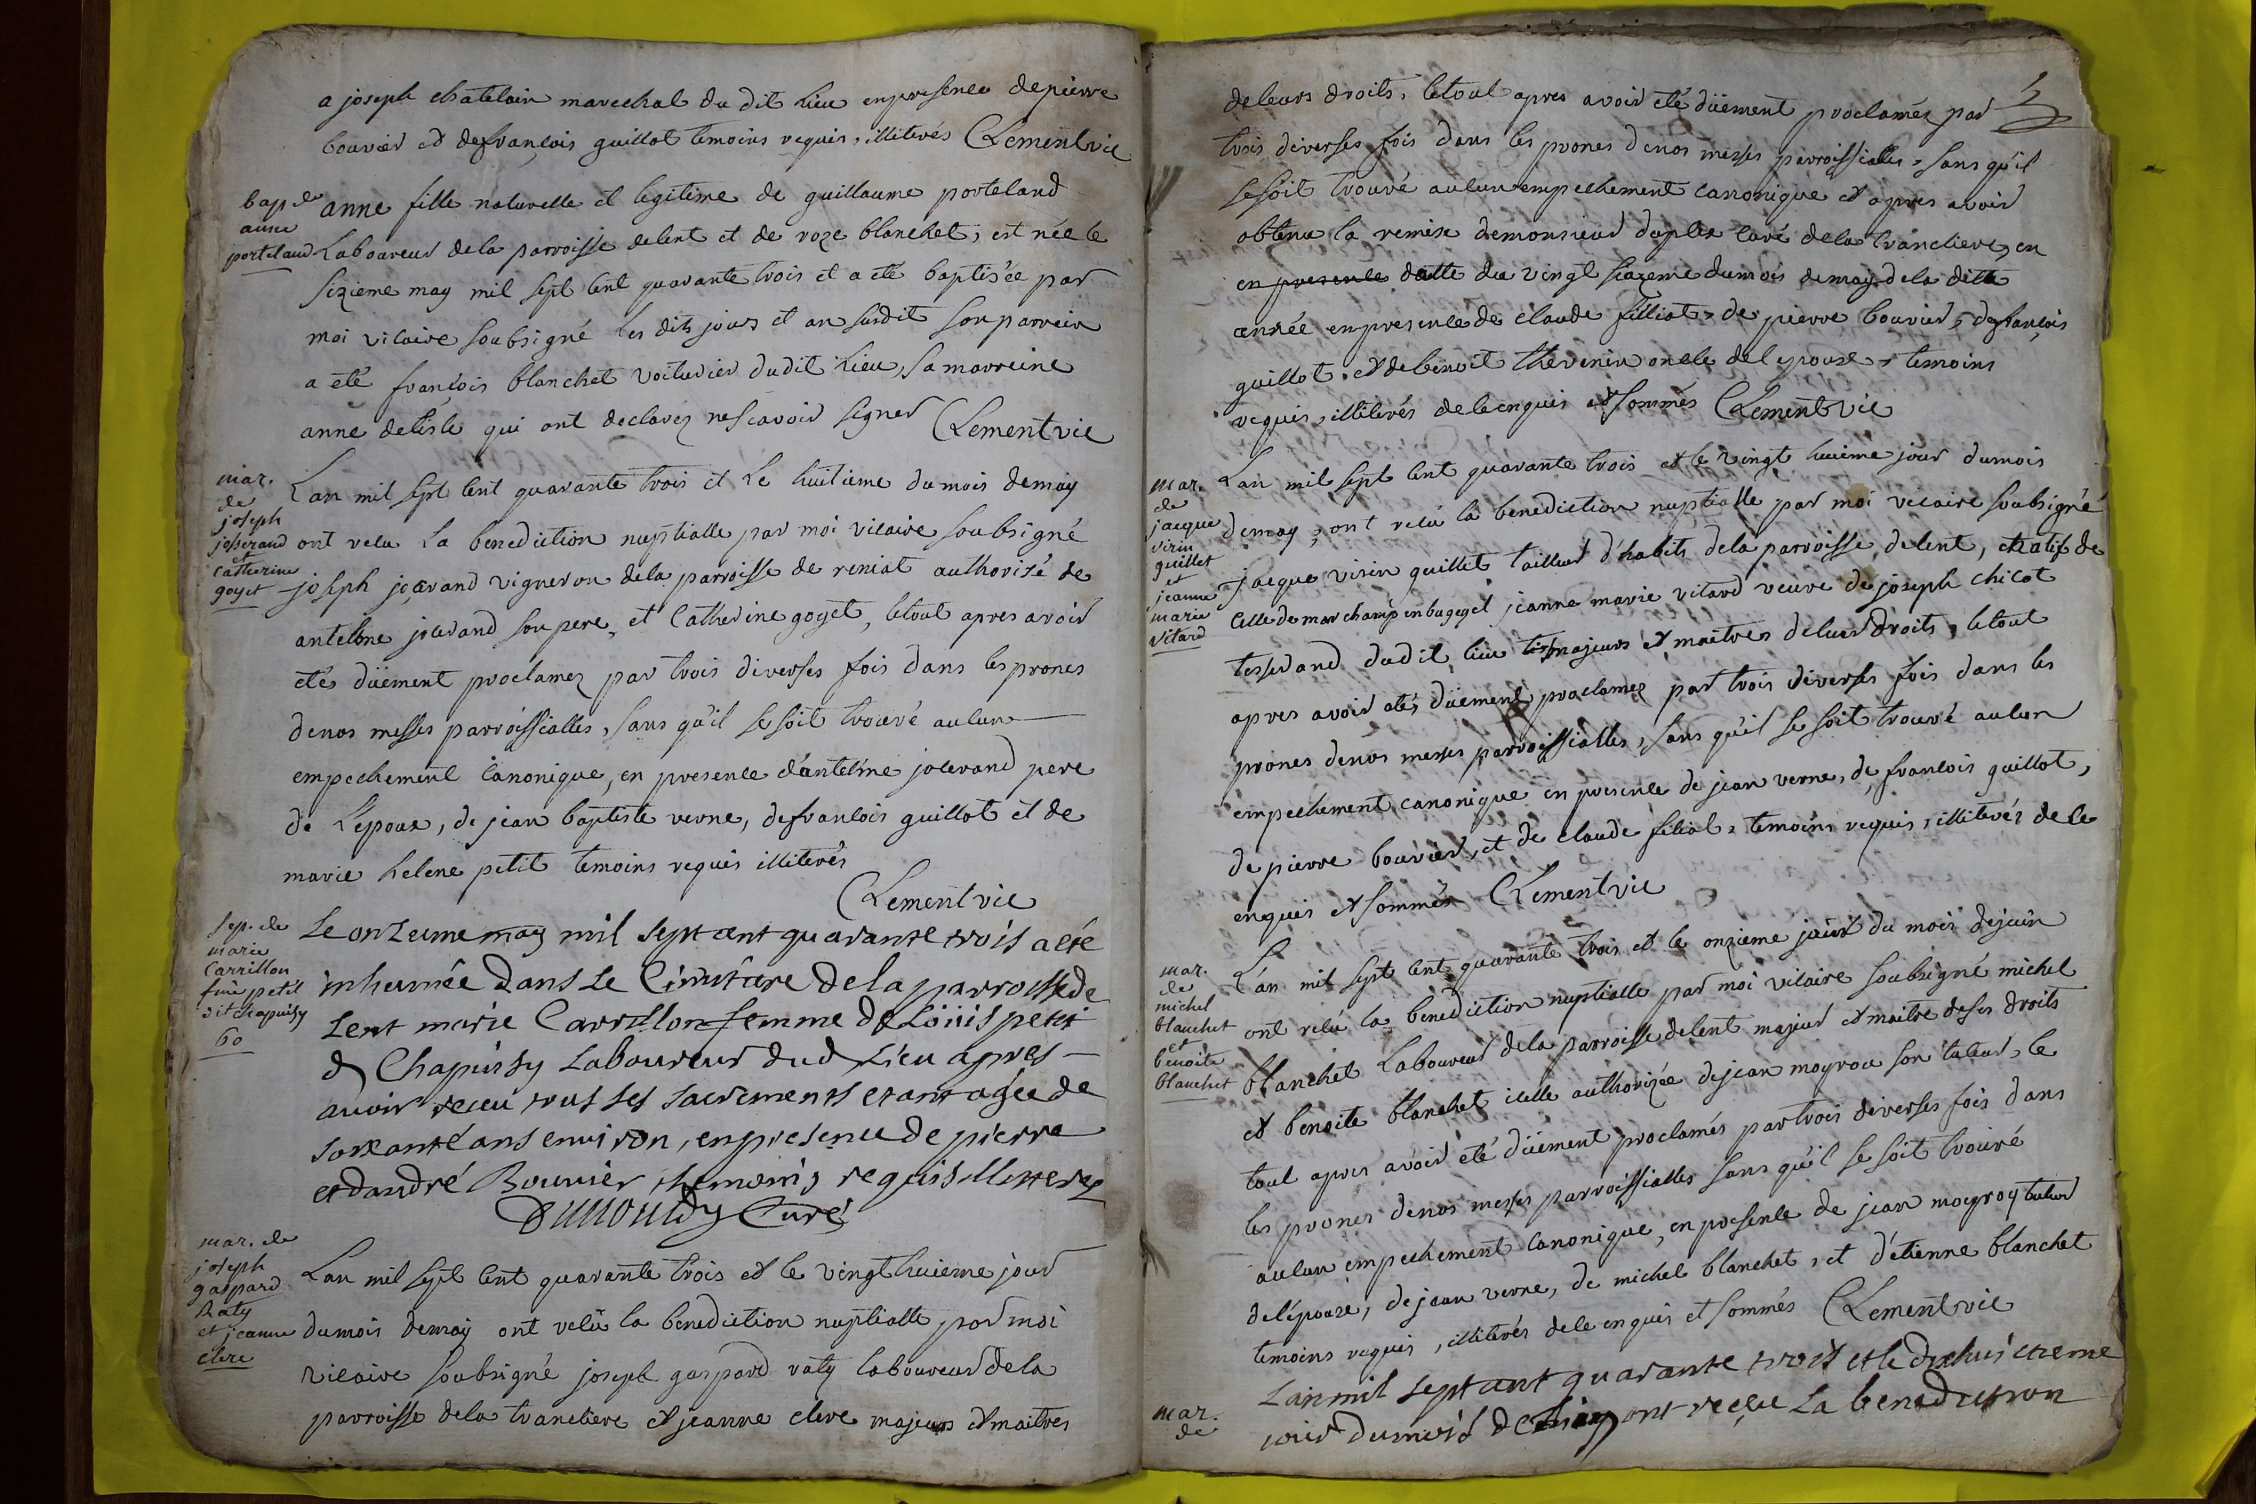 a joseph chatelain marechal du dit lieu en presence de pierre
bouvier et de françois guillot temoins requis, illiterés Clement vic
bap. de
anne
porteland
anne fille naturelle et legitime de guillaume porteland
Laboureur de la parroisse de lent et de roze blanchet, est née le
sizieme may mil sept cent quarante trois et a eté baptisée par
moi vicaire soubsigné les dits jours et an susdit son parrein
a eté françois blanchet voiturier dudit lieu, sa marreine
anne delisle qui ont declarez ne scavoir signer Clement vic
mar.
de
joseph
josserand
et
Catherine
goyet
Lan mil sept cent quarante trois et Le huitieme du mois de may
ont recu La benediction nuptialle par moi vicaire soubsigné
joseph vigneron de la parroisse de reniat authorisé de
antelme jocerand son pere, et Catherine goyet, le tout apres avoir
etés düement proclamez par trois diverses fois dans les prones
de nos messes parroissialles, sans qu'il se soit trouvé aucun
empechement Canonique, en presence d'antelme jocerand pere
de L'epoux, de jean baptiste verne, de françois guillot et de
marie helene petit temoins requis illiterés
Clement vic
sep. de
marie
Carrillon
petit
dit chapuisy
60
Le onzieme may mil sept cent quarante trois a eté
inhumée dans Le Cimitiere de la parroisse de
Lent marie Carrillon femme de Loüis petit
d Chapuisy Laboureur dud Lieu apres
avoir receu tous ses sacrements etant agée de
soixante ans environ, en presence de pierre
et dandré Bouvier themoins requis illitteres
Dunouldy Curé
mar. de
joseph
gaspard
Raty
et jeanne
clere
Lan mil sept cent quarante trois et le vingt huieme jour
du mois de may ont recu la benediction nuptialle par moi
vicaire soubsigné joseph gaspard raty laboureur de la
parroisse de la trancliere et jeanne clere majeurs et maitres
de leurs droits, le tout apres avoir eté düement proclaméz par
trois diverses fois dans les prones de nos messes parroissialles, sans qu'il
se soit trouvé aucun empechement canonique et apres avoir
obtenu la remise de monsieur curé de la trancliere, en
en presence datte du vingt sixieme du mois de may de la ditte
année en presence de claude filliat, de pierre bouvier, de françois
guillot, et de benoit thevenin oncle de l epouse, temoins
requis, illiterés de ce enquis et sommés Clement vic
mar.
de
jacque
virin
guillet
et
jeanne
marie
vitard
Lan mil sept cent quarante trois et le vingt huieme jour du mois
de may, ont recu la benediction nuptialle par moi vicaire soubsigné
jacque virin guillet tailleur d'habits de la parroisse de lent, et natif de
celle de marchamp en bugey et jeanne marie vitard veuve de joseph chicot
tesserand dudit lieu majeurs et maitres de leur droits, le tout
apres avoir etés düement proclamez par trois diverses fois dans les
prones de nos messes parroissialles, sans qu'il se soit trouvé aucun
empechement canonique en presence de jean verne, de françois guillot,
de pierre bouvier, et de claude filiat, temoins requis, illiterés de ce
enquis et sommés Clement vic
mar.
de
michel
blanchet
et
benoite
blanchet
L'an mil sept cent quarante trois et le onzieme jour du mois de juin
ont recu la benediction nuptialle par moi vicaire soubsigné michel
blanchet Laboureur de la parroisse de lent majeur et maitre de ses droits
et benoite blanchet icelle authorizée de jean moyrou son tuteur, le
tout apres avoir eté düement proclamés par trois diverses fois dans
les prones de nos messes parroissialles sans qu'il se soit trouvé
aucun empechement canonique, en presence de jean moyroy tuteur
de l'épouze, de jean verne, de michel blanchet, et d'étienne blanchet
temoins requis, illiterés de ce enquis et sommés Clement vic
mar.
de
Lan mil sept cent quarante trois et le dixhuictieme
jour du mois de juin ont receu La benediction